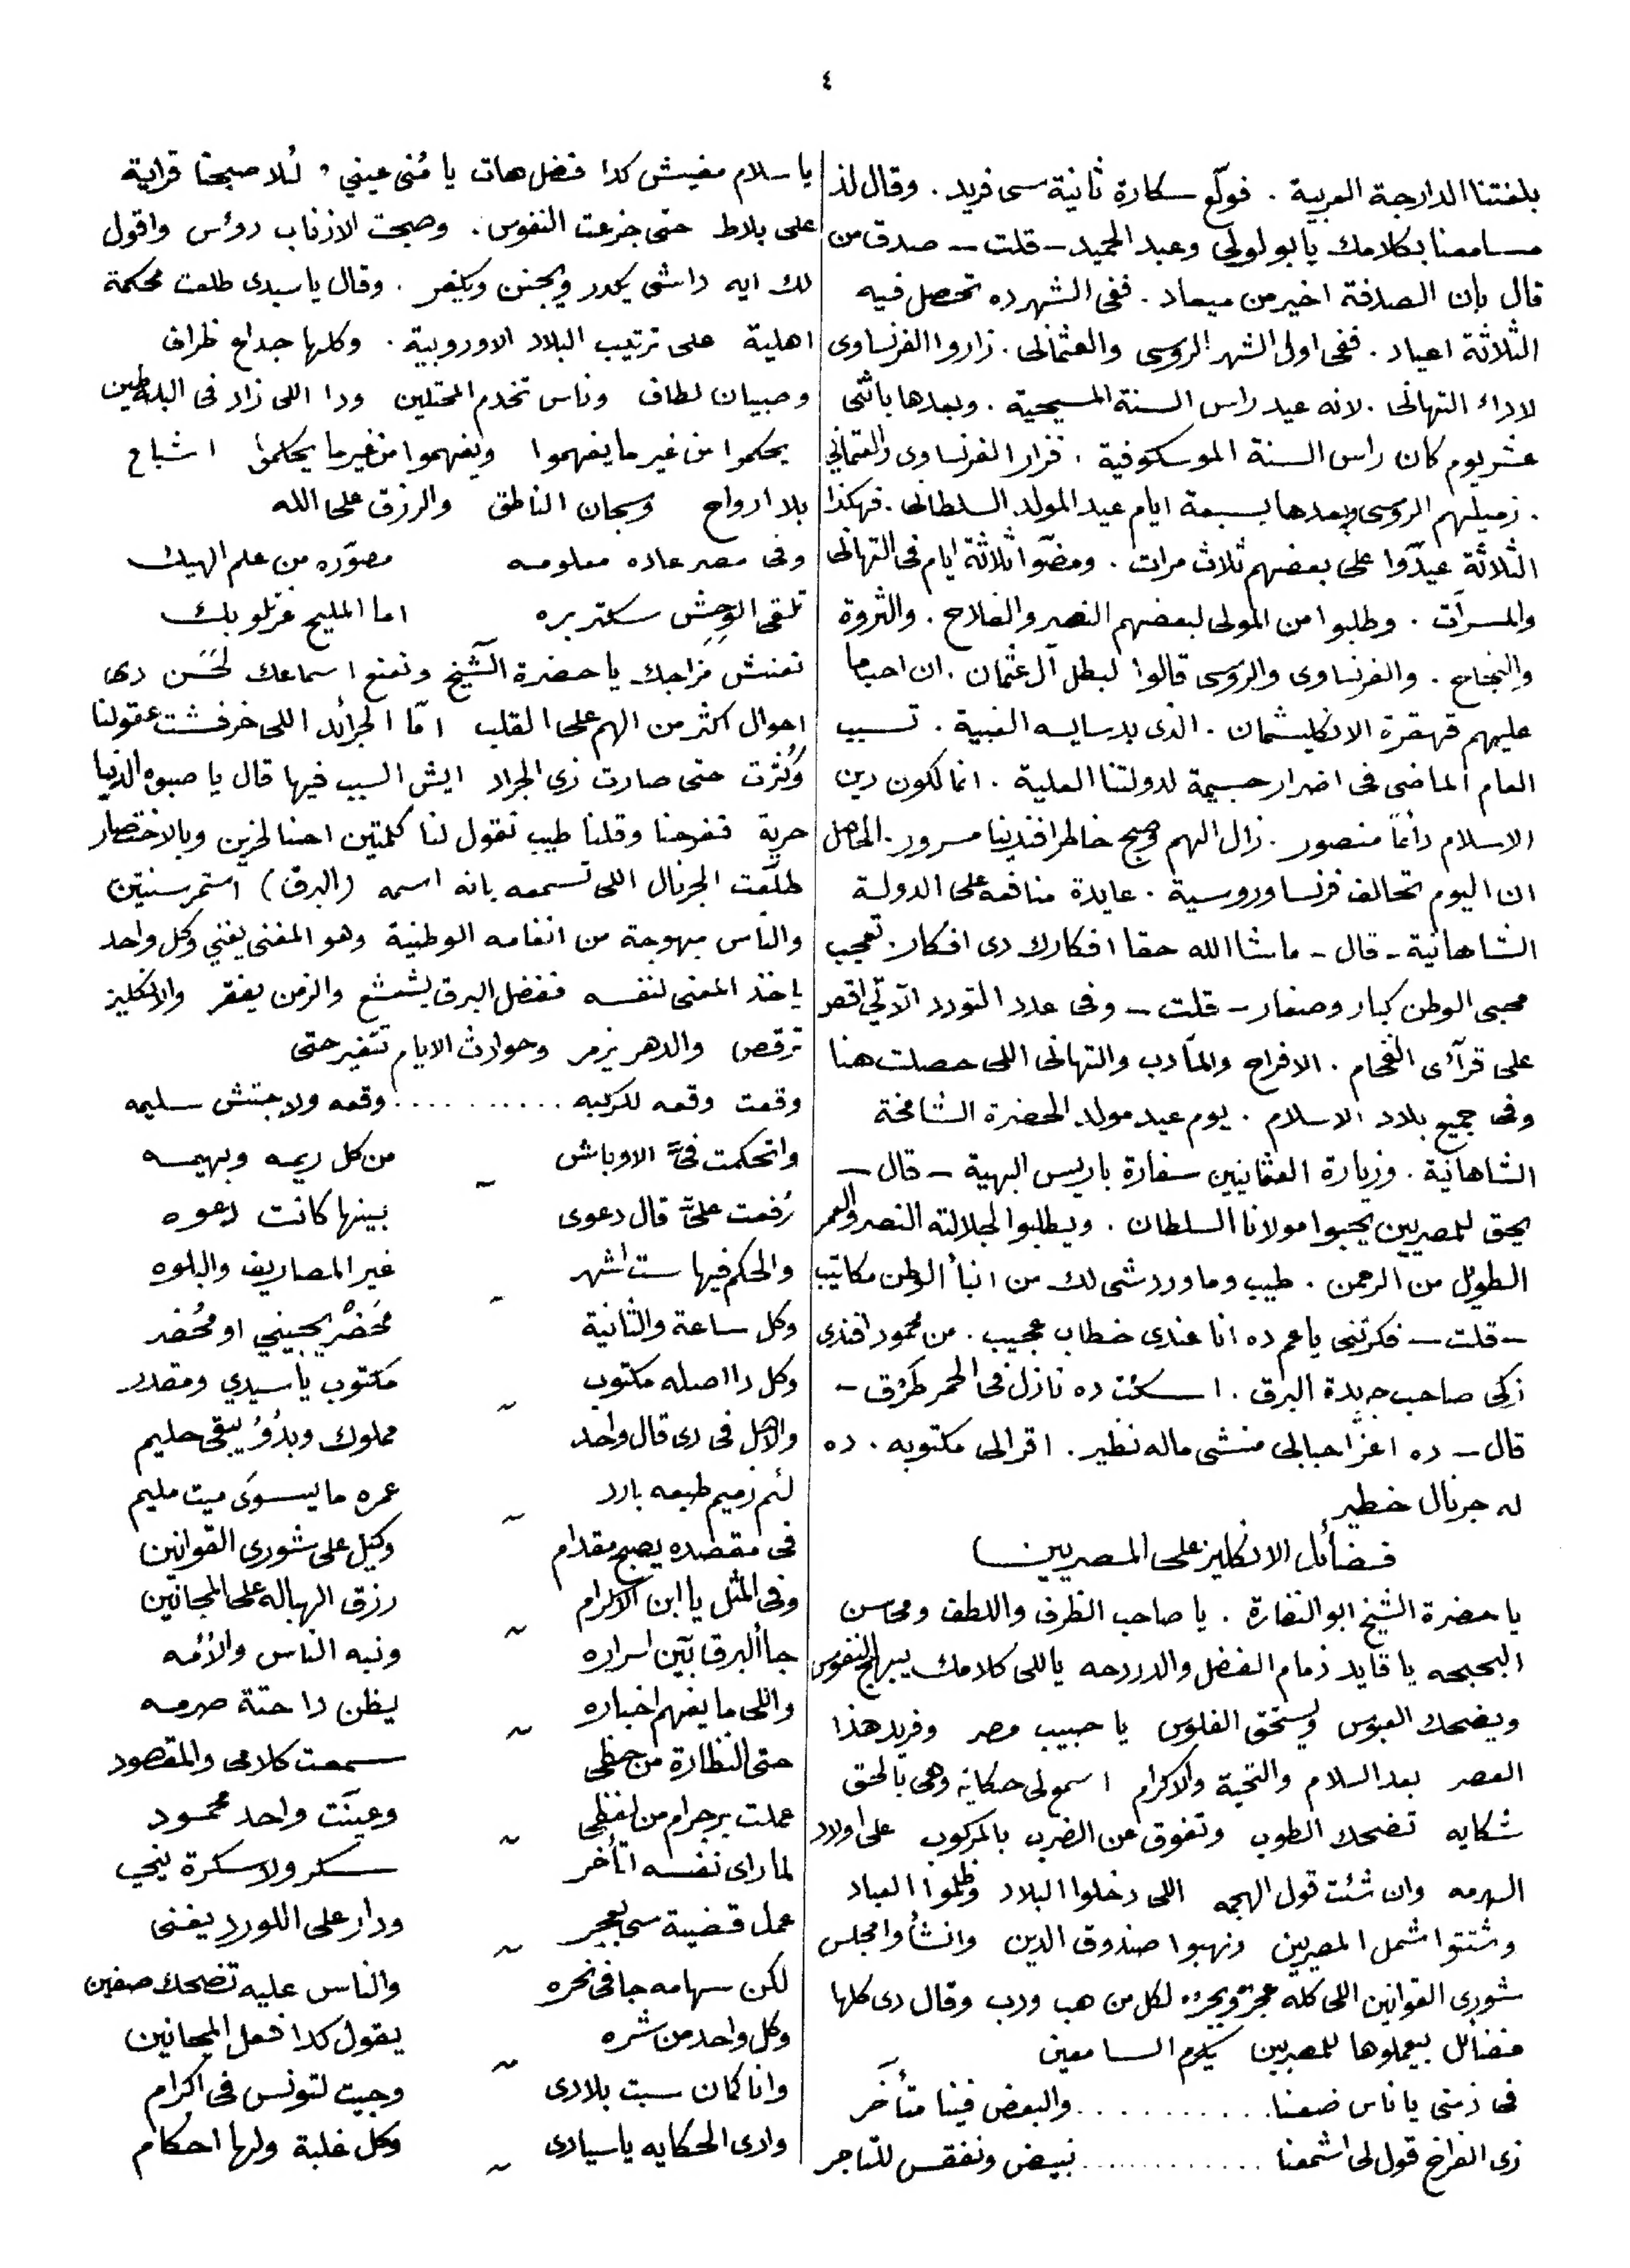 ٤
بلغتنا الدارجة العربية . فولّع سكارة ثانية سى فريد . وقال لذ
مسامعنا بكلامك يا بو لولى وعبد الحميد — قلت — صدق من
قال بان الصدفة اخير من ميعاد . ففى الشهر ده تحصل فيه
الثلاثة اعياد . ففى اول الشهر الروسى والعثمانى . زاروا الفرنساوى
لاداء التهانى . لانه عيد راس السنة المسيحية . وبعدها باثنى
عشر يوم كان راس السنة الموسكوفية . فزار الفرنساوى والعثمانى
. زميلهم الروسى وبعدها بسبعة ايام عيد المولد السلطانى . فهكذا
الثلاثة عيدّوا على بعضهم ثلاث مرات . ومضّوا ثلاثة ايام فى التهانى
والمسرات . وطلبوا من المولى لبعضهم النصر والفلاح . والثروة
والنجاح . والفرنساوى والروسى قالوا لبطل آل عثمان . ان احب ما
عليهم قهقرة الانكليشمان . الذى بدسايسه الغبية . تسبب
العام الماضى فى اضرار جسيمة لدولتنا العلية . انما لكون دين
الاسلام دائماً منصور . زال الهم وصبح خاطر افندينا مسرور . الحاصل
ان اليوم تحالف فرنسا وروسية . عايدة منافعه على الدولة
الشاهانية — قال — ماشا الله حقا افكارك دى افكار . تعجب
محبى الوطن كبار وصغار — قلت — وفى عدد التودد الآتى اقصر
على قرآئى الفخام . الافراح والمآدب والتهانى اللى حصلت هنا
وفى جميع بلاد الاسلام . يوم عيد مولد الحضرة الشامخة
الشاهانية . وزيارة العثمانيين سفارة باريس البهية — قال —
يحق للمصريين يحبوا مولانا السلطان . ويطلبوا لجلالته النصر والعمر
الطويل من الرحمن . طيب وما وردشى لك من انبأ الوطن مكاتيب
— قلت — فكرتنى يا عم ده انا عندى خطاب عجيب . من محمود افندى
زكى صاحب جريدة البرق . اسكت ده نازل فى الحمر طَرْق —
قال — ده اعز احبابى منشى ماله نظير . اقرا لى مكتوبه . ده
له جرنال خطير
فضائل الانكليز على المصريين
يا حضرة الشيخ ابو النضارة . يا صاحب الظرف واللطف ومحاسن
البحبحه يا قايد زمام الفضل والدردحه يا للى كلامك يبهج النفوس
ويضحك العبوس ويستحق الفلوس يا حبيب مصر وفريد هذا
العصر بعد السلام والتحية والاكرام اسمع لى حكايه وهى بالحق
شكايه تضحك الطوب وتفوق عن الضرب بالمركوب على اولاد
السهرمه وان شئت قول الهجمه اللى دخلوا البلاد وظلموا العباد
وشتتوا شمل المصريين ونهبوا صندوق الدين وانشأوا مجلس
شورى القوانين اللى كله عجزه ويجره لكل من هب ودب وقال دى كلها
فضائل بيعملوها للمصريين يكرم السامعين
فى زمنى يا ناس ضعنا . . . . . . . . . . والبعض فينا متأخر
زى الفراخ قول لى اشمعنا . . . . . . . . . . . نبيض ونفقس للتاجر
يا سلام مفيش كدا فضل هات يا مُنى عينى , لُلا صبحنا قرابة
على بلاط حتى جزعت النفوس . وصبحت الاذناب رؤس واقول
لك ايه دا شى يكدر ويجنن ويكفر . وقال يا سيدى طلعت محكمة
اهلية على ترتيب البلاد الاوروبية . وكلها جداع ظراف
وصبيان لطاف وناس تخدم المحتلين ودا اللى زاد فى البله طين
يحكموا من غير ما يفهموا ويفهموا من غير ما يحكموا اشباح
بلا ارواح وسبحان الناطق والرزق على الله
وفى مصر عاده معلومه مصوّره من علم الهيك
تلقى الوحش سكتربره اما المليح غزلو بك
نعنش مزاجك يا حضرة الشيخ ونمنع اسماعك لحَسَن دى
احوال اكثر من الهم على القلب امّا الجرائد اللى خرفشت عقولنا
وكُترت حتى صارت زى الجراد ايش السبب فيها قال يا صبوه الدنيا
حرية ففرحنا وقلنا طيب نقول لنا كلمتين احنا لخرين وبالاختصار
طلّعت الجرنال اللى تسمعه بانه اسمه (البرق) استمر سنتين
والناس مبهوجة من انغامه الوطنية وهو المغنى يغنى وكل واحد
ياخذ المعنى لنفسه ففضل البرق يشعشع والزمن يفقر والانكليز
ترقص والدهر يزمر وحوادث الايام تتغير حتى
وقعت وقعه للركبه . . . . . . . . . . وقعه ولا جتش سليمه
واتحكمت فىّ الاوباش من كل ريمه وبهيمه
رُفعت علىّ قال دعوى بينها كانت دعوه
والحكم فيها ست اشهر غير المصاريف والبلوه
وكل ساعة والثانية مَحَضْر يجينى او محُضر
وكل دا اصله مكتوب مكتوب يا سيدى ومقدر
والاهل فى دى قال واحد مملوك وبدُو يبقى حليم
لئم زميم طبعه بارد عمره ما يسوى ميت مليم
فى مقصده يصبح مقدام وكيل على شورى القوانين
وفى المثل يا ابن الاكرام رزق الهباله على المجانين
جا البرق بَيّن اسراره ونبه الناس والأمه
واللى ما يفهم اخباره يظن دا حتة صرمه
حتى النظارة من حظى سمعت كلامى والمقصود
عملت برجرام من لفظى وعيّنت واحد محمود
لما راى نفسه اتأخر سكر ولا سكرة ينى
عمل قضية سى بعجر ودار على اللورد يغنى
لكن سهامه جا فى نحره والناس عليه تضحك صفين
وكل واحد من شره يقول كدا فعل المجانين
وانا كمان سبت بلادى وجيت لتونس فى اكرام
وادى الحكايه يا سيادى وكل غلبة ولها احكام